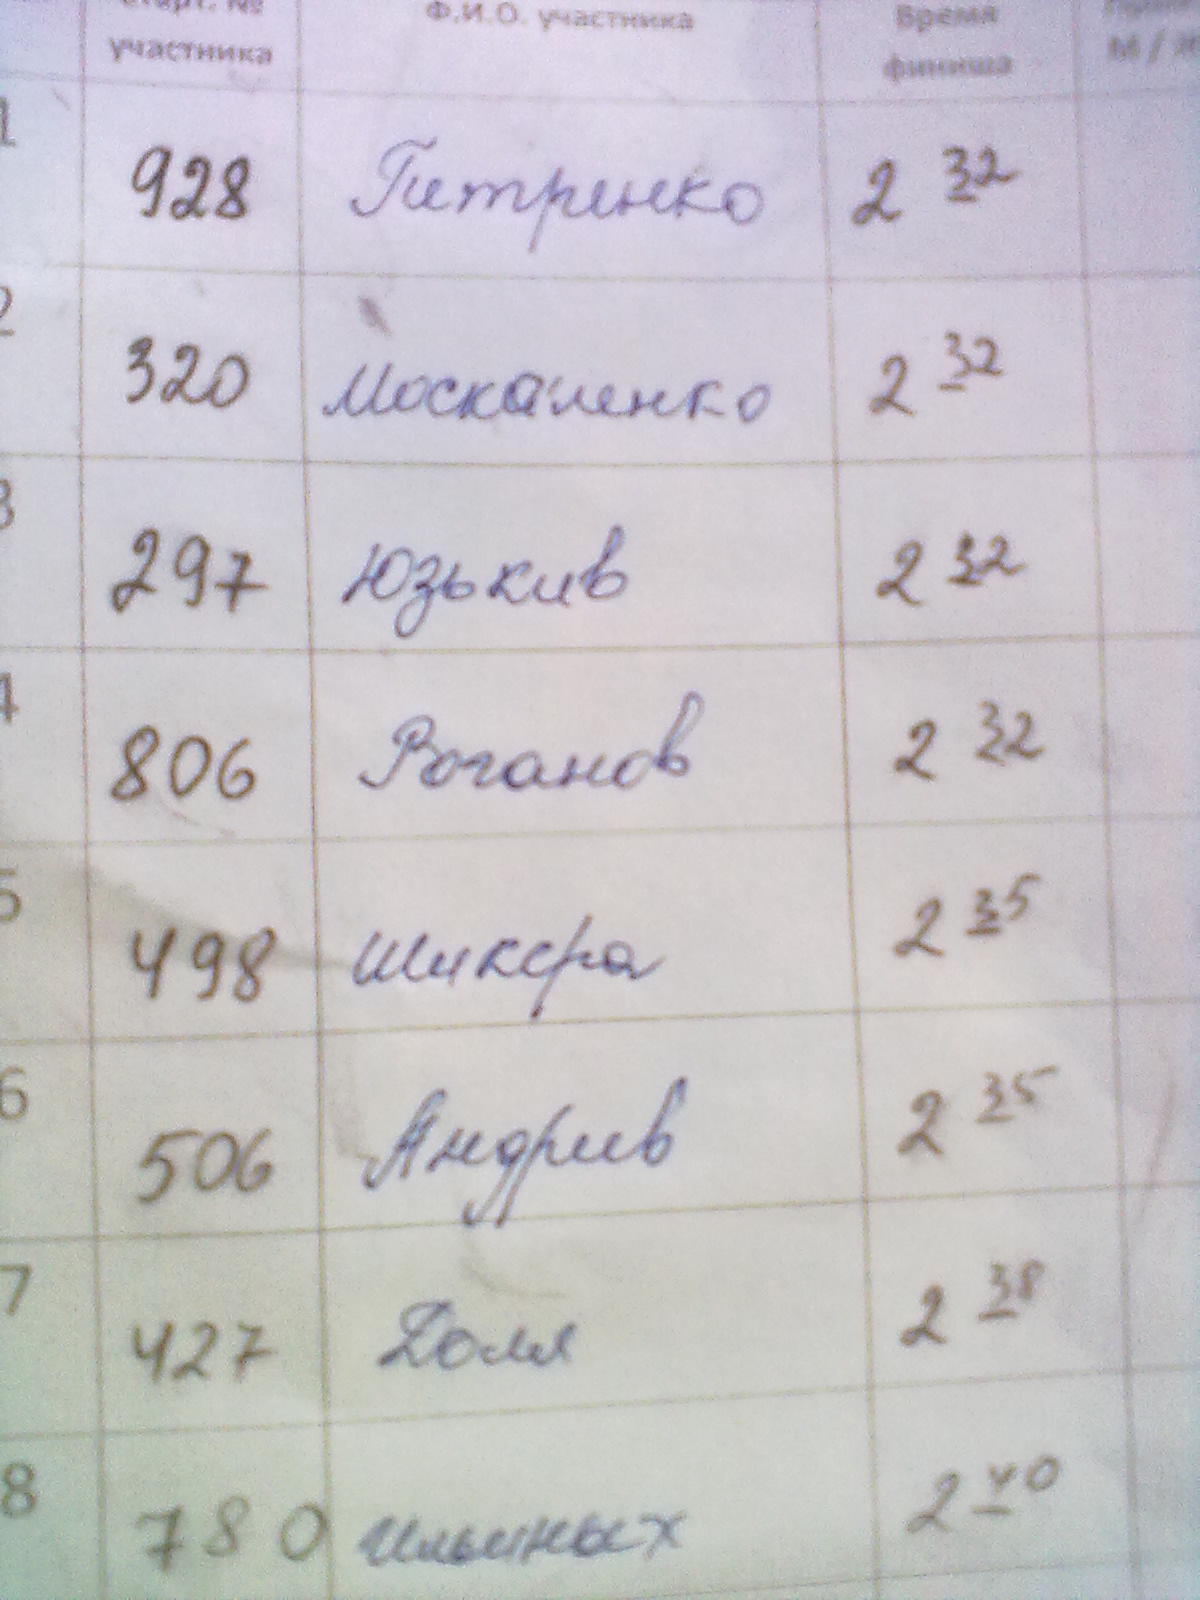 Старт. № Ф.И.О. участника Время
участника финиша М / Ж
1 928 Петренко 2 32
2 320 Москаленко 2 32
3 297 Юзькив 2 32
4 806 Роганов 2 32
5 498 Шикера 2 35
6 506 Андрив 2 35
7 427 Доля 2 38
8 780 Ильиных 2 40